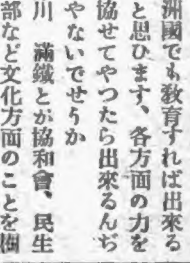 洲國でも敎育すれば出來る
と思ひます、各方面の力を
協せてやつたら出來るんぢ
やないでせうか
川　滿鐵とか協和會、民生
部など文化方面のことを